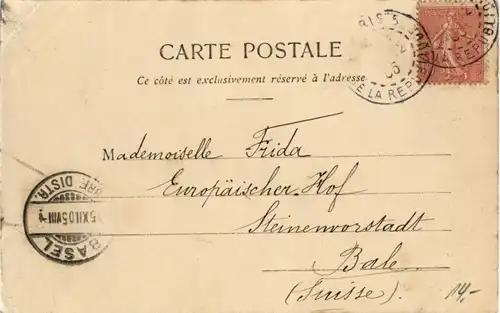 CARTE POSTALE
Ce côté est exclusivement réservé à l'adresse
Mademoiselle Frida
Europäischer Hof
Steinenvorstadt
Bale
(Suisse).
14,-
DE LA REP
BASEL
5.XII.05.VIII
DISTR